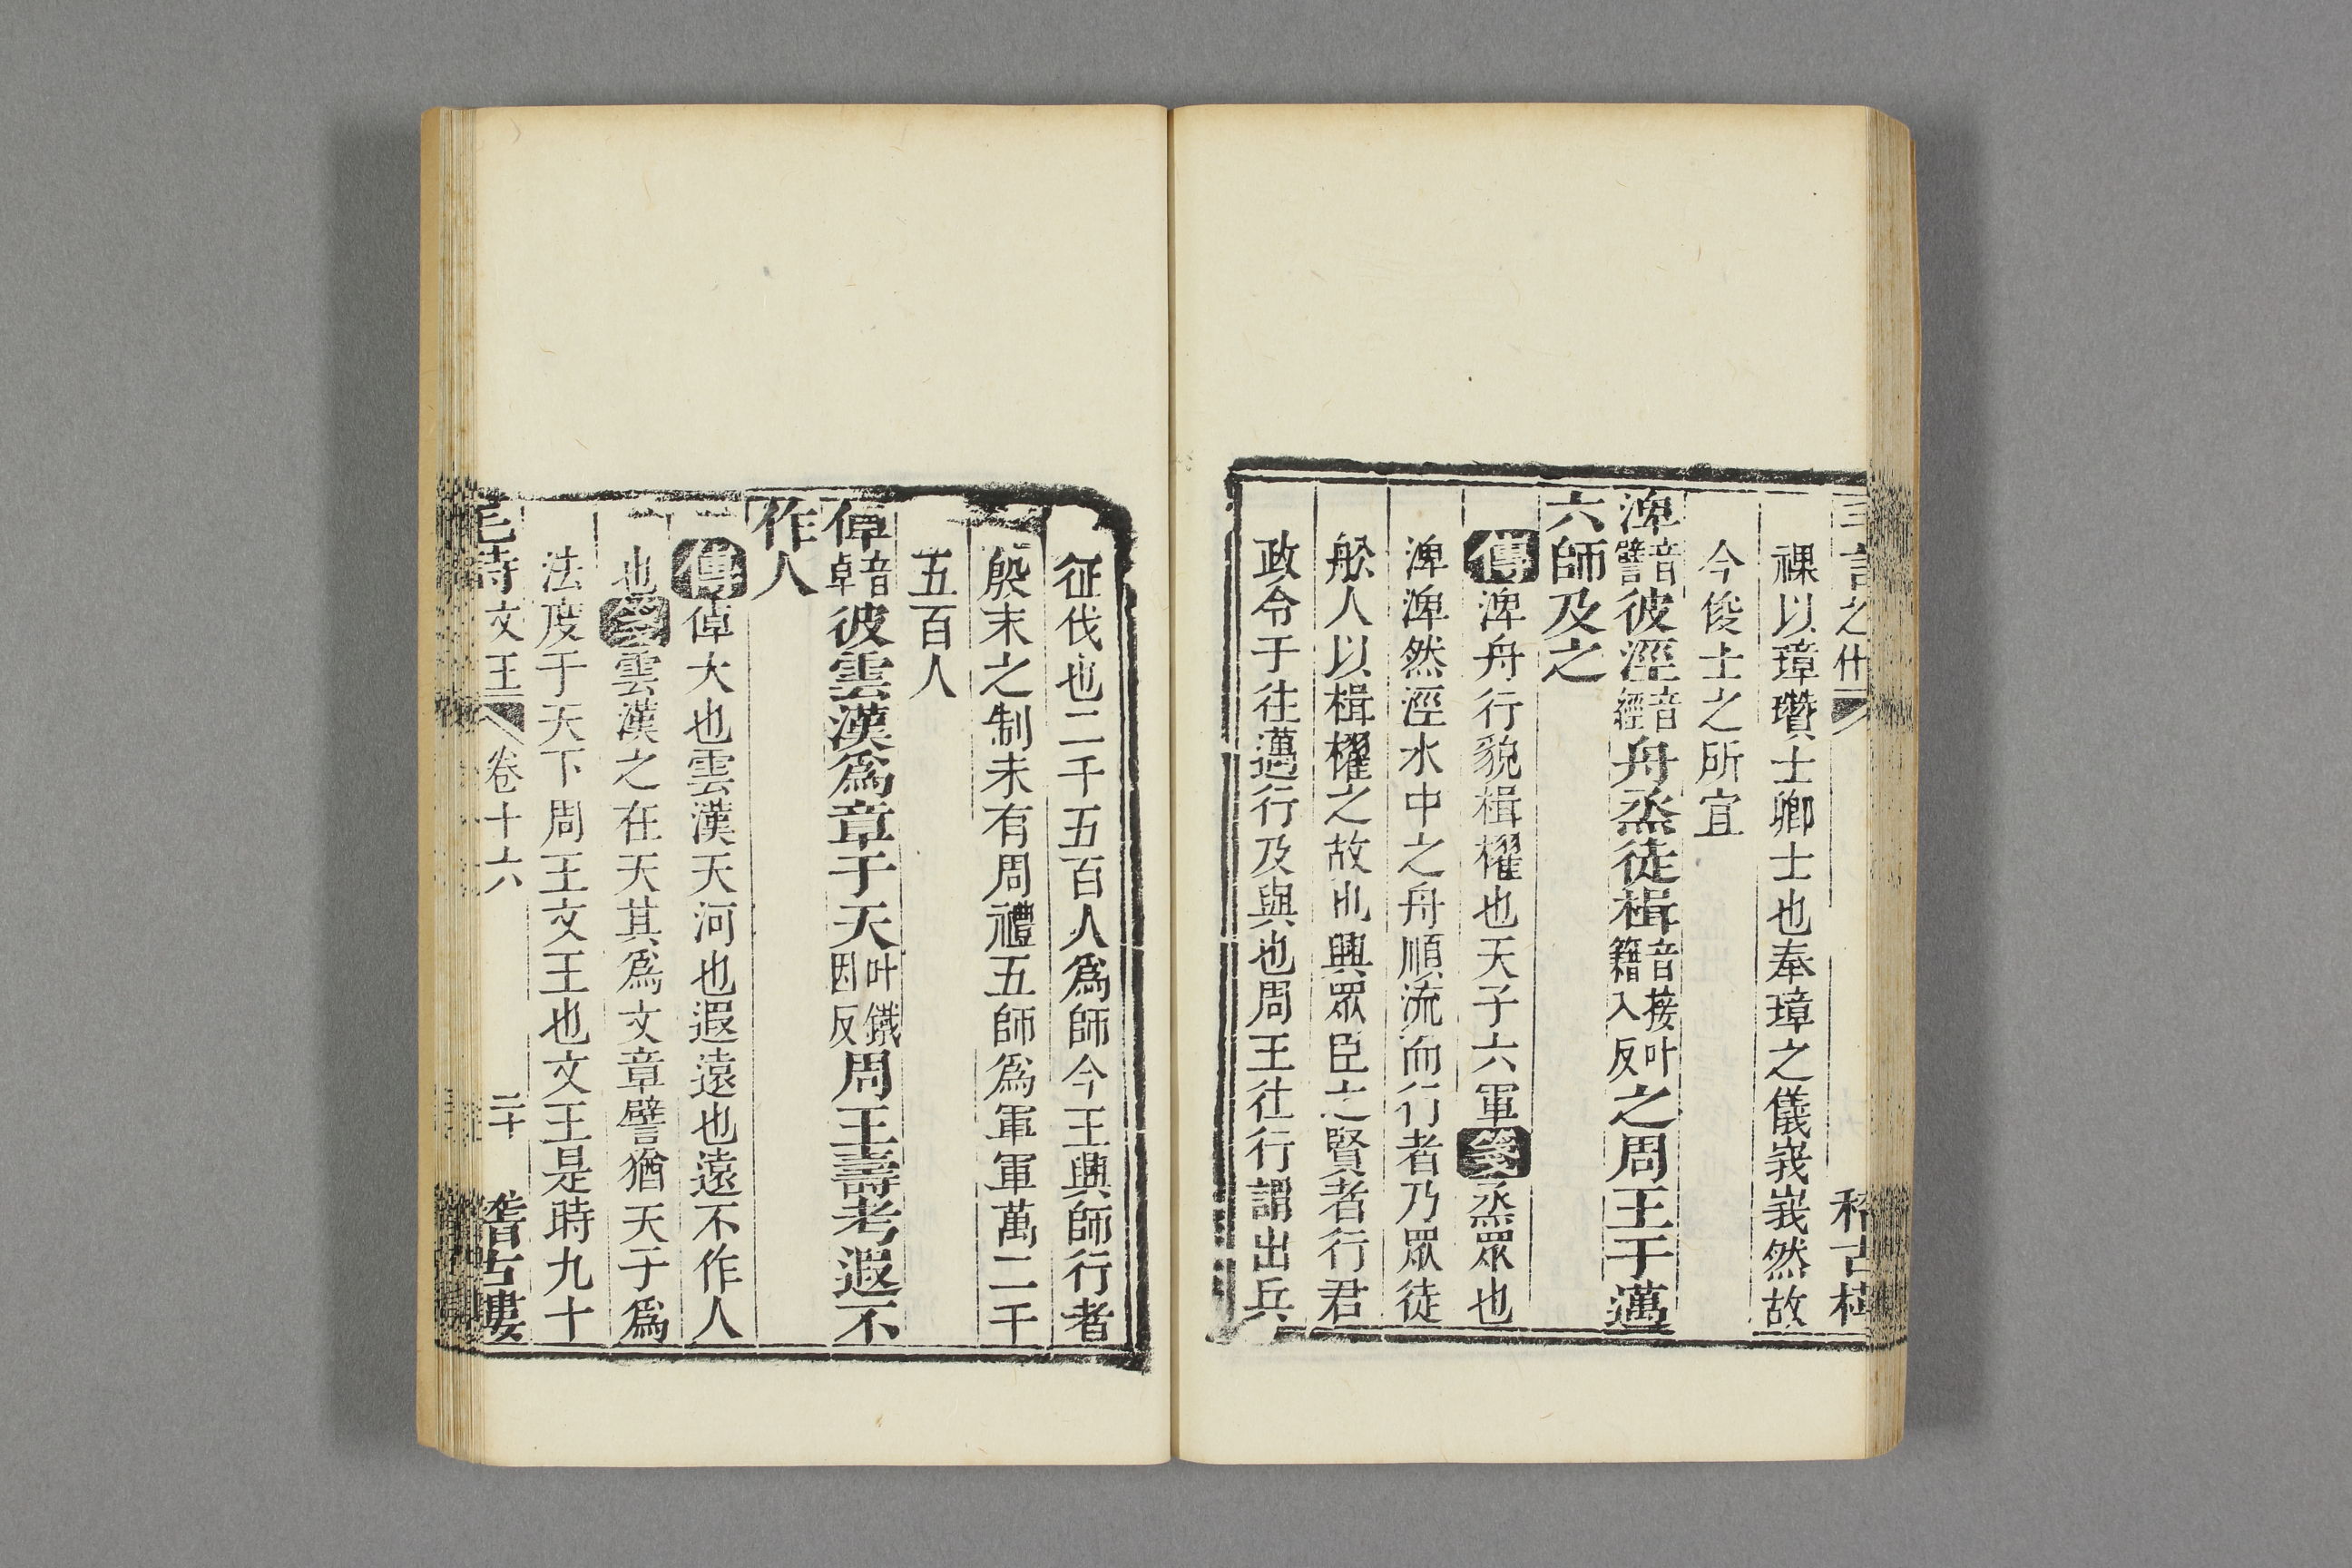 之什
稽古樓
祼以璋瓚士卿士也奉璋之儀峩峩然故
今俊士之所宜
淠音譬彼涇音經舟烝徒楫音接叶籍入反之周王于邁
六師及之
傳淠舟行貌楫櫂也天子六軍箋烝眾也
淠淠然涇水中之舟順流而行者乃眾徒
舩人以楫櫂之故也興眾臣之賢者行君
政令于往邁行及與也周王往行謂出兵
征伐也二千五百人爲師今王興師行者
殷末之制未有周禮五師爲軍軍萬二千
五百人
倬音卓彼雲漢爲章于天叶鐵因反周王壽考遐不
作人
傳倬大也雲漢天河也遐遠也遠不作人
也箋雲漢之在天其爲文章譬猶天子爲
法度于天下周王文王也文王是時九十
毛詩 文王 卷十六 二十 稽古樓